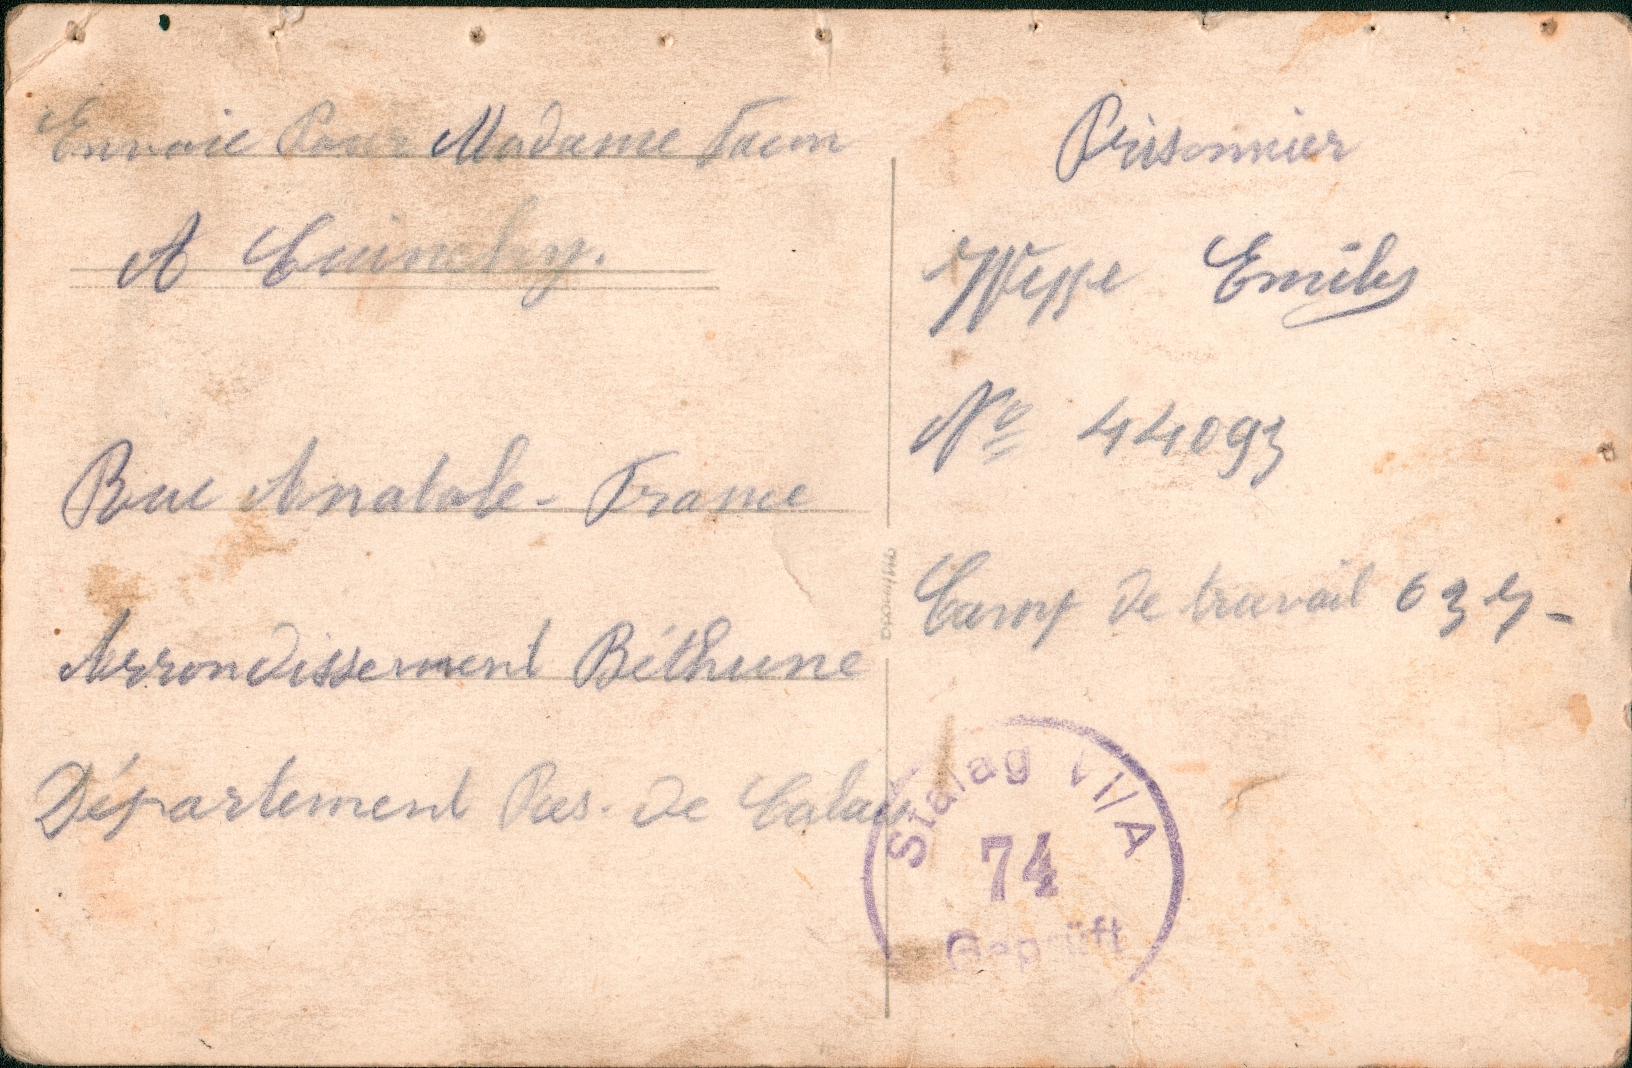 Envoie Pour Madame Facon
A Cuinchy.
Rue Anatole-France
Arrondissement Béthune
Département Pas-de Calais
Prisonnier
Emile
No 44093
Camp de travail 637-
Stalag VI/A
74
Geprüft